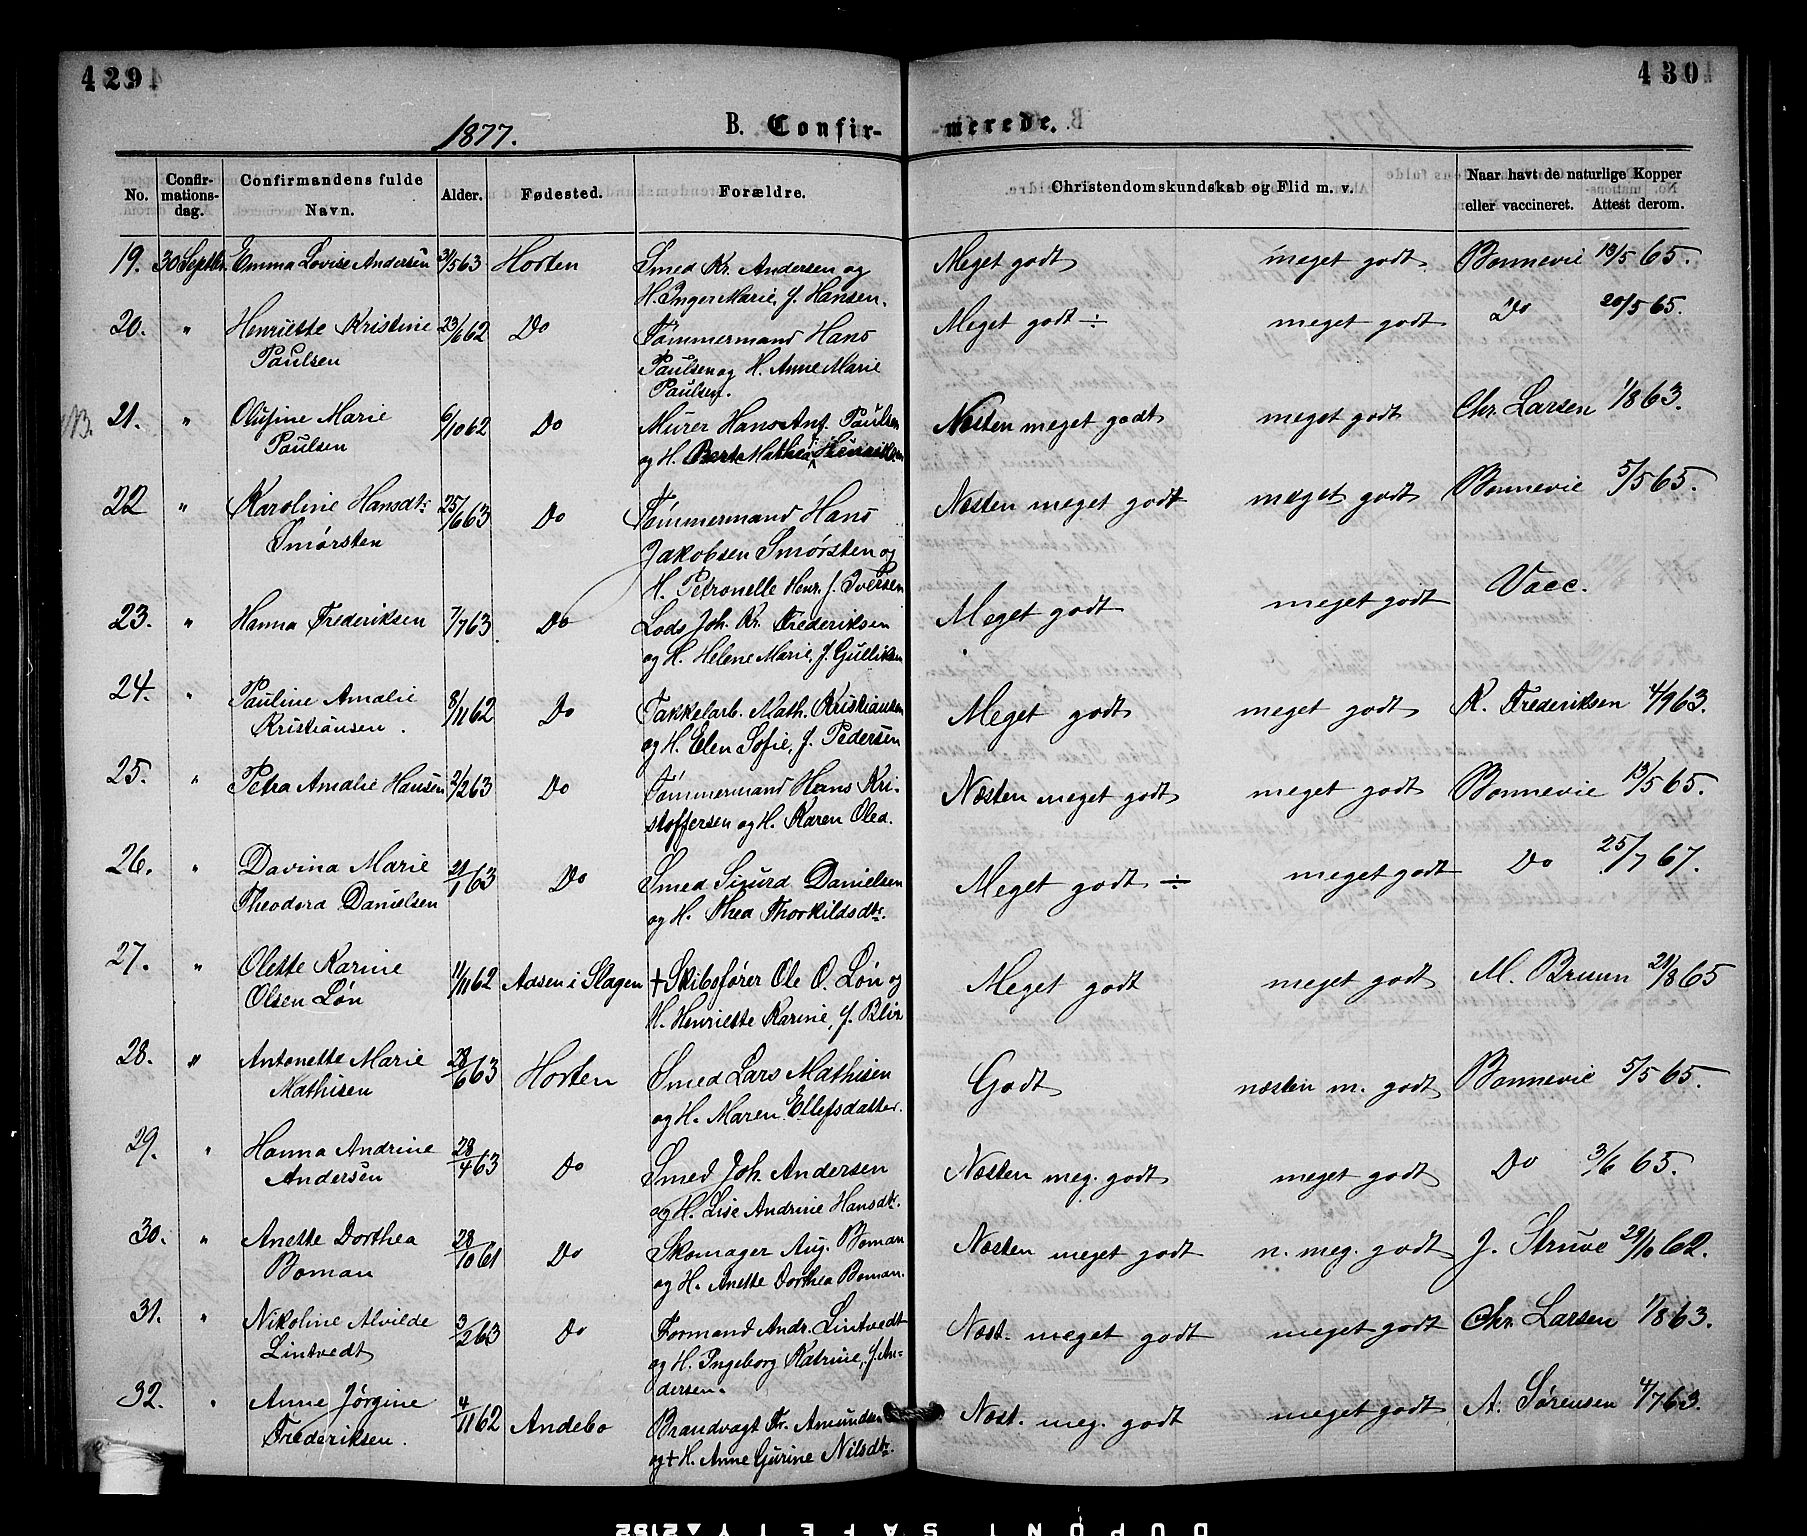 429
430
1877.
B. Confir-
merede.
No.
Confir-
mations-
dag.
Confirmandens fulde
Navn.
Alder.
Fødested.
Forældre.
Christendomskundskab og Flid m. v.
Naar havt de naturlige Kopper
eller vaccineret. Attest derom.
19. 30 Septbr. Emma Lovise Andersen 31/5 63 Horten Smed Kr. Andersen og Meget godt meget godt Bonnevie 13/5 65.
H. Inger Marie, f. Hansen.
20. " Henriette Kristine 23/6 62 Do Tømmermand Hans Meget godt ÷ meget godt Do 20/5 65.
Paulsen Paulsen og H. Anne Marie
Paulsen.
NB. 21. " Olufine Marie 6/10 62 Do Murer Hans Anf. Paulsen Næsten meget godt meget godt Chr. Larsen 1/8 63.
Paulsen og H. Berte Mathea Henriksen
22 " Karoline Hansdtr 25/6 63 Do Tømmermand Hans Næsten meget godt meget godt Bonnevie 5/5 65.
Smørsten Jakobsen Smørsten og
H. Petronelle Henr. f. Iversen
23. " Hanna Frederiksen 7/7 63 Do Lods Joh. Kr. Frederiksen Meget godt meget godt Vacc.
og H. Helene Marie, f. Gulliksen
24. " Pauline Amalie 8/11 62 Do Takkelarb. Math. Kristiansen Meget godt meget godt K. Frederiksen 4/9 63.
Kristiansen. og H. Elen Sofie, f. Pedersen
25. " Petra Amalie Hansen 2/2 63 Do Tømmermand Hans Kri- Næsten meget godt meget godt Bonnevie 13/5 65.
stoffersen og H. Karen Olea.
26. " Davina Marie 21/1 63 Do Smed Sigurd Danielsen Meget godt ÷ meget godt Do 25/7 67.
Theodora Danielsen og H. Thea Thorkildsdtr.
27. " Olette Karine 11/11 62 Aasen i Slagen + Skibsfører Ole O. Løn og Meget godt meget godt M. Bruun 21/8 65
Olsen Løn H. Henriette Karine, f. Blix
28. " Antonette Marie 28/6 63 Horten Smed Lars Mathisen Godt næsten m. godt Bonnevie 5/5 65.
Mathisen og H. Maren Ellefsdatter.
29. " Hanna Andrine 28/4 63 Do Smed Joh. Andersen Næsten meg. godt meget godt Do 3/6 65.
Andersen og H. Lise Andrine Hansdtr.
30. " Anette Dorthea 28/10 61 Do Skomager Aug. Boman Næsten meget godt n. meg. godt J. Struve 29/10 62.
Boman og H. Anette Dorthea Boman.
31. " Nikoline Alvilde 3/2 63 Do Formand Andr. Lintvedt Næst. meget godt meget godt Chr. Larsen 1/8 63.
Lintvedt og H. Ingeborg Katrine, f. An-
dersen.
32. " Anne Jørgine 4/11 62 Andebo Brandvagt Fr. Amundsen Næst. meg. godt meget godt A. Sørensen 4/7 63.
Frederiksen. og + H. Anne Gurine Nilsdtr.